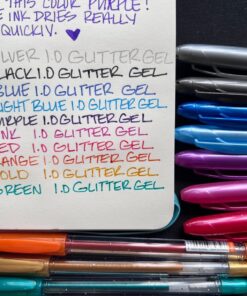 THIS COLOR PURPLE!
INK DRIES REALLY
QUICKLY. ♥
LVER 1.0 GLITTER GEL
LACK 1.0 GLITTER GEL
BLUE 1.0 GLITTER GEL
GHT BLUE 1.0 GLITTER GEL
RPLE 1.0 GLITTER GEL
INK 1.0 GLITTER GEL
ED 1.0 GLITTER GEL
RANGE 1.0 GLITTER GEL
OLD 1.0 GLITTER GEL
GREEN 1.0 GLITTER GEL